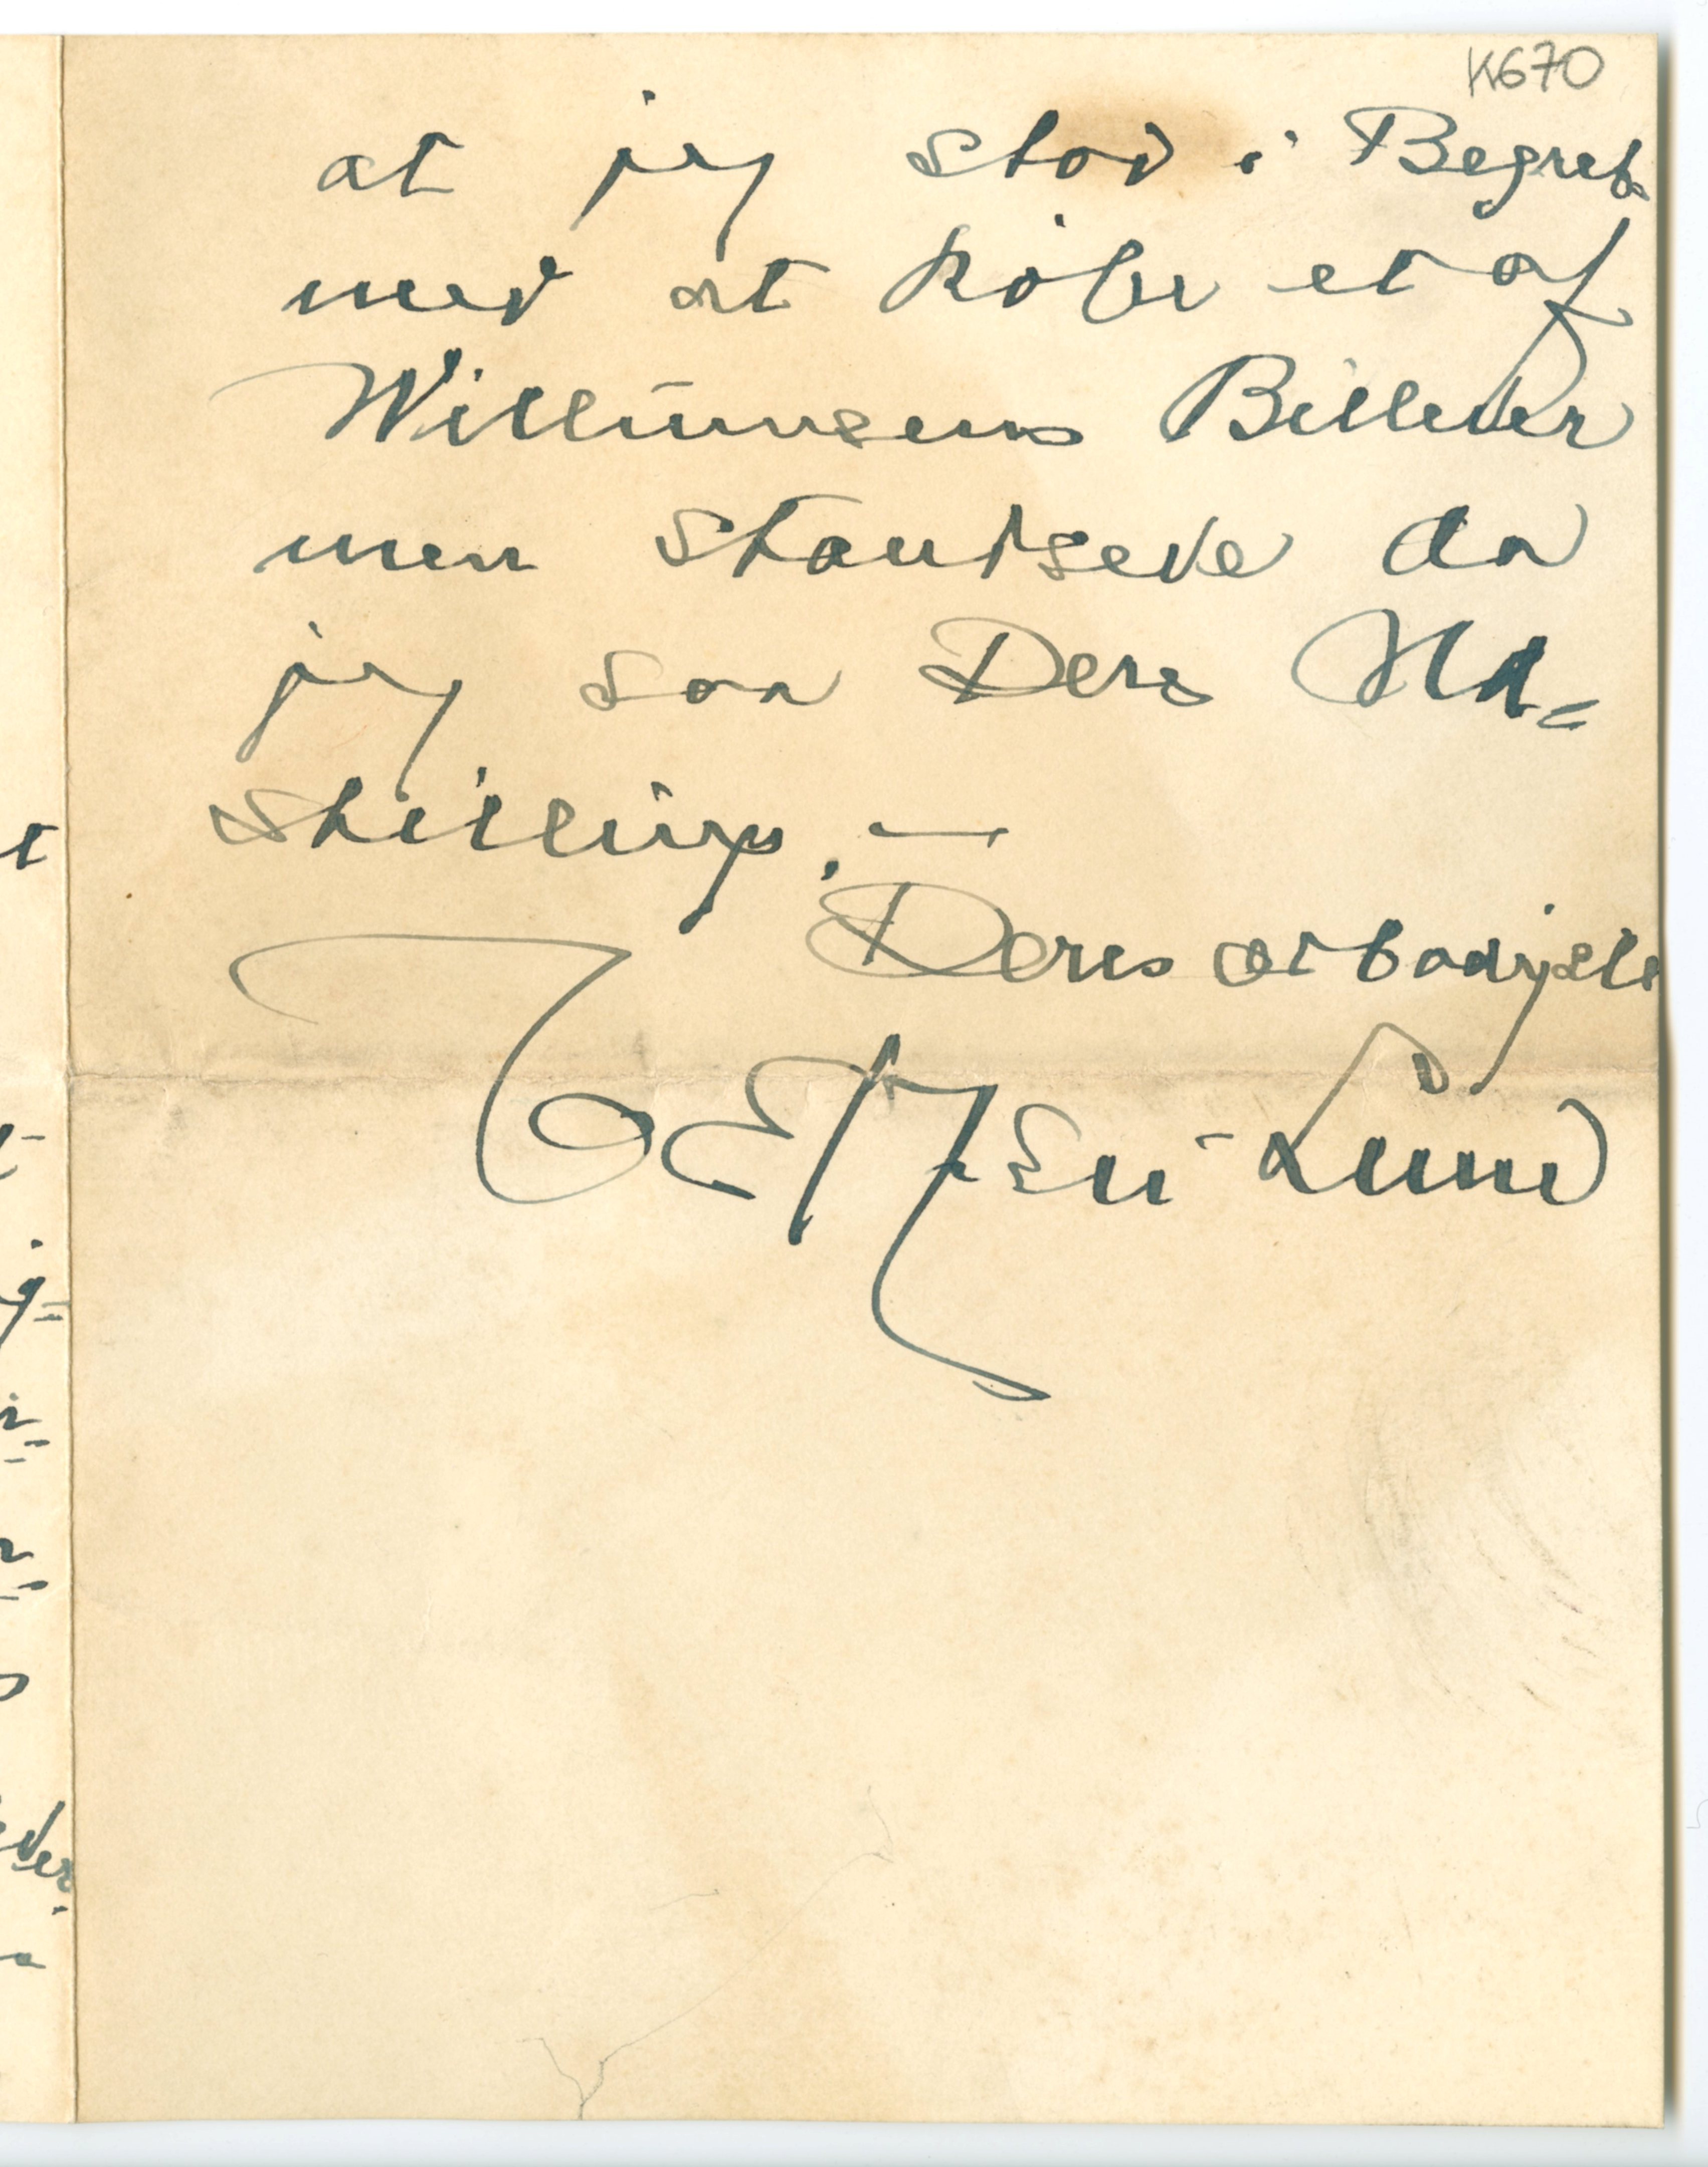 K670
at jeg stod i Begreb
med at köbe et af
Willumsens Billeder
men standsede da
jeg saa Deres Ud=
stilling. —
Deres ærbødigste
Lund